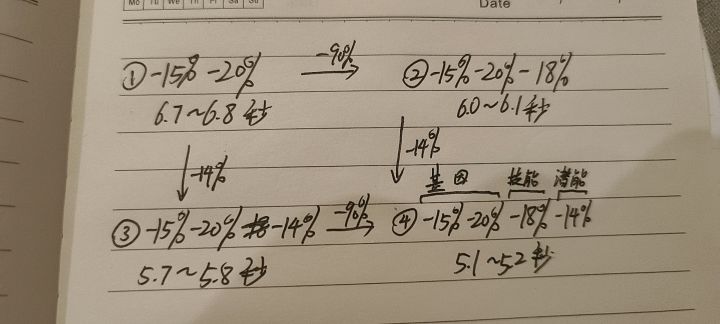 Mo Tu We Th Fr Sa Su
Date
① -15% -20% -90% ② -15% -20% -18%
6.7~6.8秒 6.0~6.1秒
-14% -14%
基因 技能 潜能
③ -15% -20% -14% -90% ④ -15% -20% -18% -14%
5.7~5.8秒 5.1~5.2秒